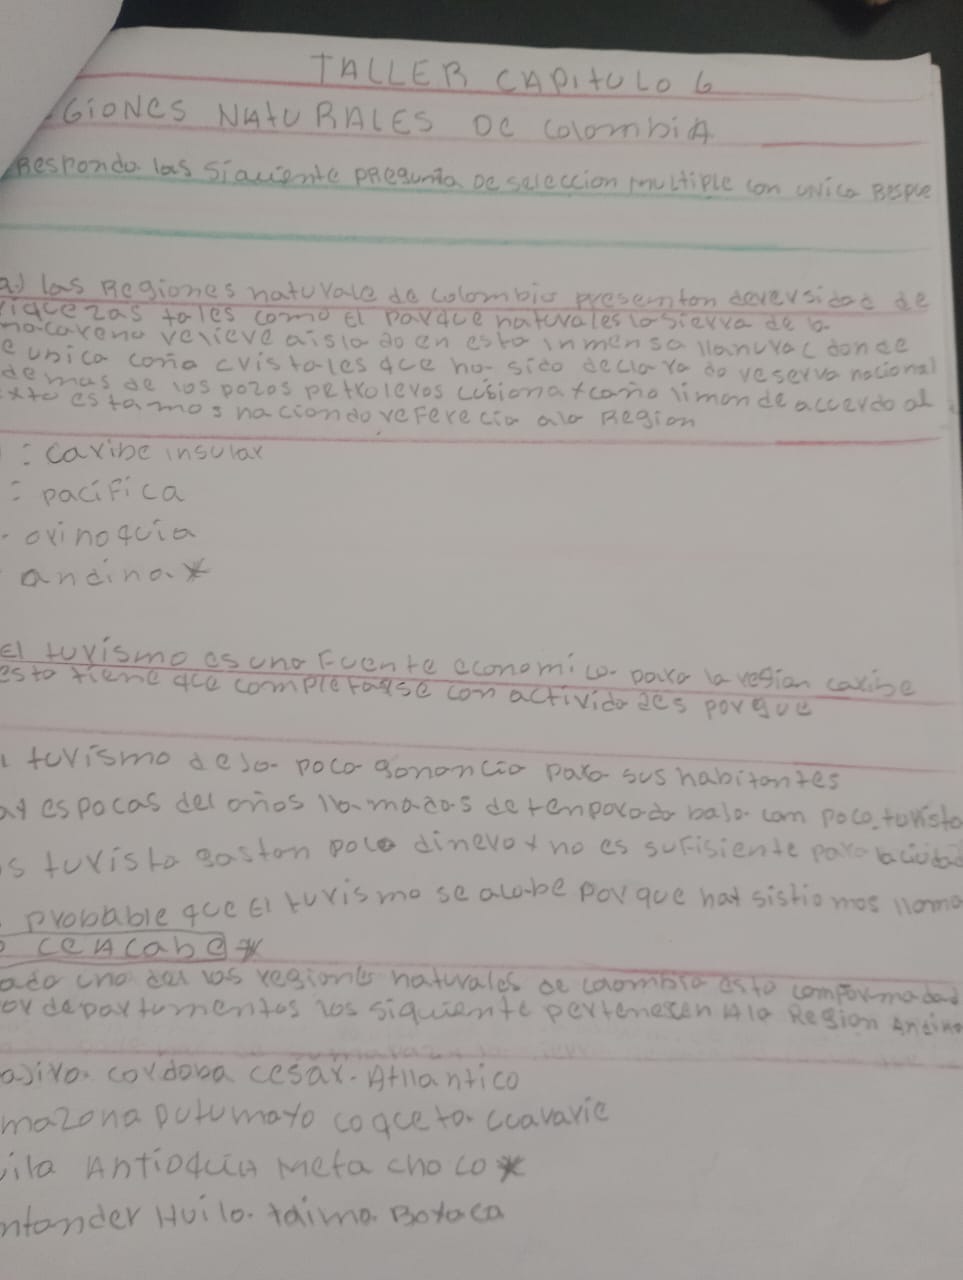 TALLER CAPITULO 6
GIONES NATURALES DE COLOMBIA
Responda las siauiente pregunta De seleccion multiple con unica Respue
a) las Regiones naturale de colombia presentan deversidad de
riquezas tales como El parque naturales la sierra de la
macareno relieve aislado en esta inmensa llanura (donde
e unica caña cristales que ha sido declarado reserva nacional
demas de los pozos petroleros cusiana y caño limon de accuerdo al
xto estamos haciondo referecia ala Region
: caribe insular
: pacifica
. orinoquia
andina *
El turismo es una Fuente economica para la region caribe
esto tiene que completarse con actividades porque
turismo deja poca ganancia para sus habitantes
ay espocas del años llamadas de tenporada baja com poca turista
s turista gastan poco dinero y no es sufisiente para la ciudad
probable que El turismo se acabe porque hay sistiomas llama
o ceAcabe *
ada una del las regiones naturales de colombia esta comformadad
or departumentos los siquiente pertenesen Ala Region Andina
ajira cordoba cesar. Atllantico
mazona putumayo caqueta. Guavarie
ila Antioquia Meta choco *
ntander Huila. tolima. Boyaca